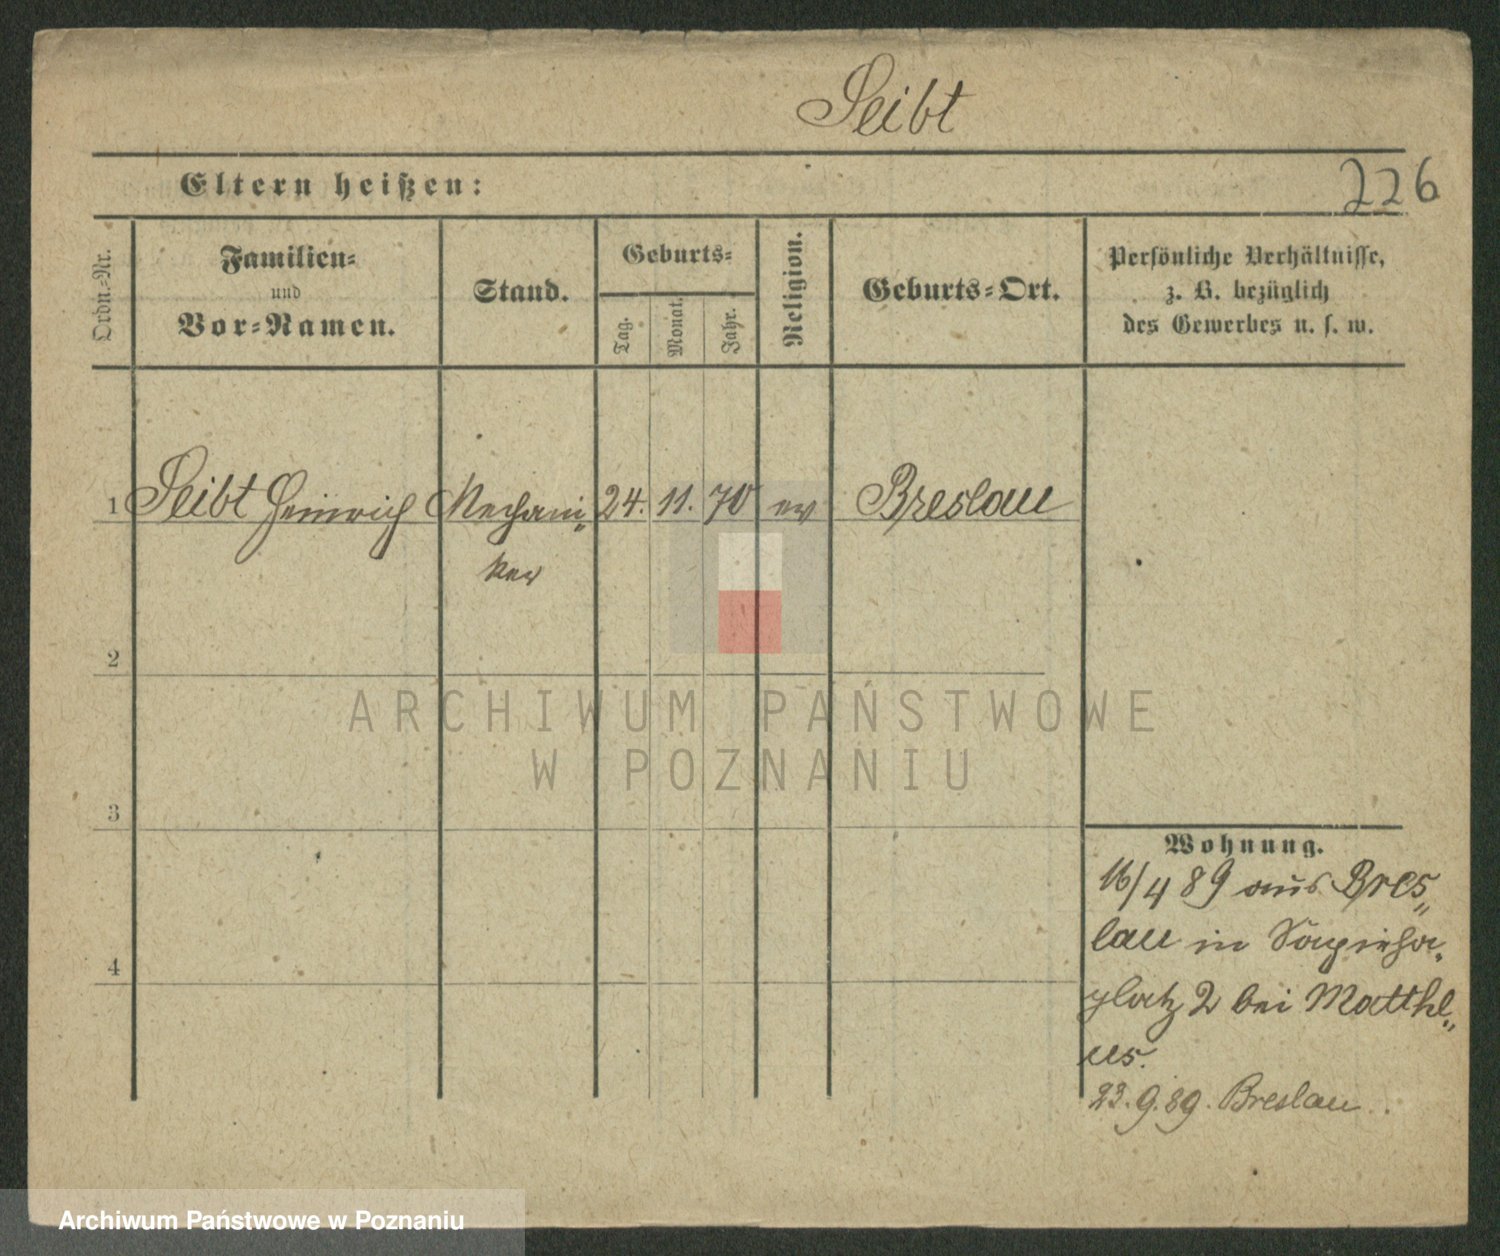 Seibt
Eltern heißen:
226
Ordn.-Nr.
Familien-
und
Vor-Namen.
Stand.
Geburts-
Tag.
Monat.
Jahr.
Religion.
Geburts-Ort.
Persönliche Verhältnisse,
z. B. bezüglich
des Gewerbes u. s. w.
1 Seibt Heinrich Mechani- 24. 11. 70 ev Breslau
ker
2
3
4
Wohnung.
16/4 89 aus Bres-
lau in Sapieha-
platz 2 bei Matthe-
us.
23.9.89. Breslau.
ARCHIWUM PAŃSTWOWE
W POZNANIU
Archiwum Państwowe w Poznaniu